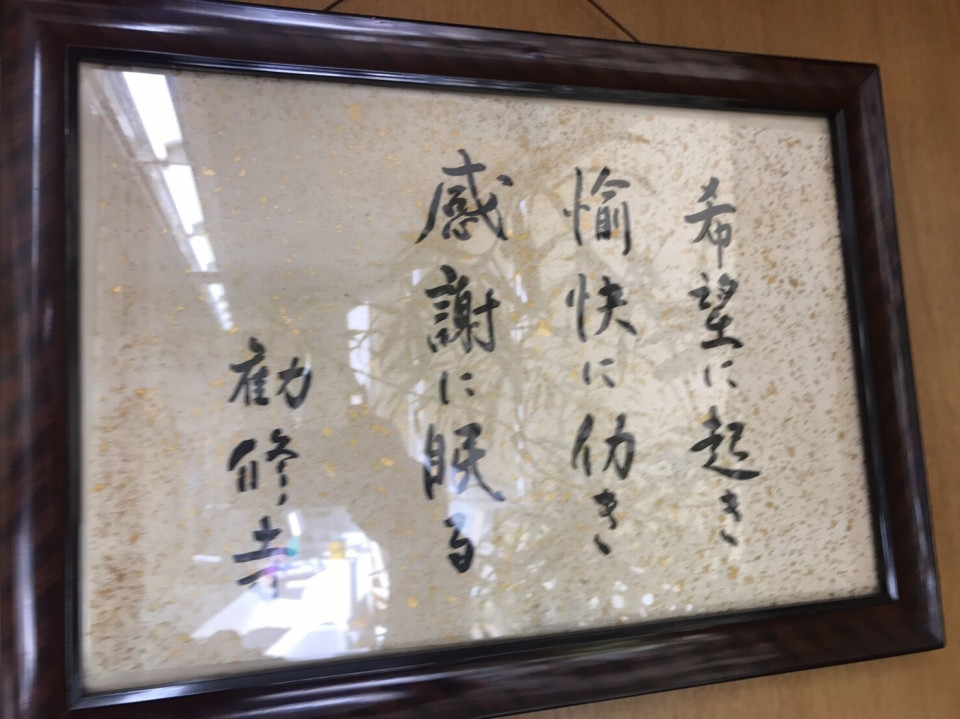 希望に起き
愉快に仂き
感謝に眠る
勧修寺